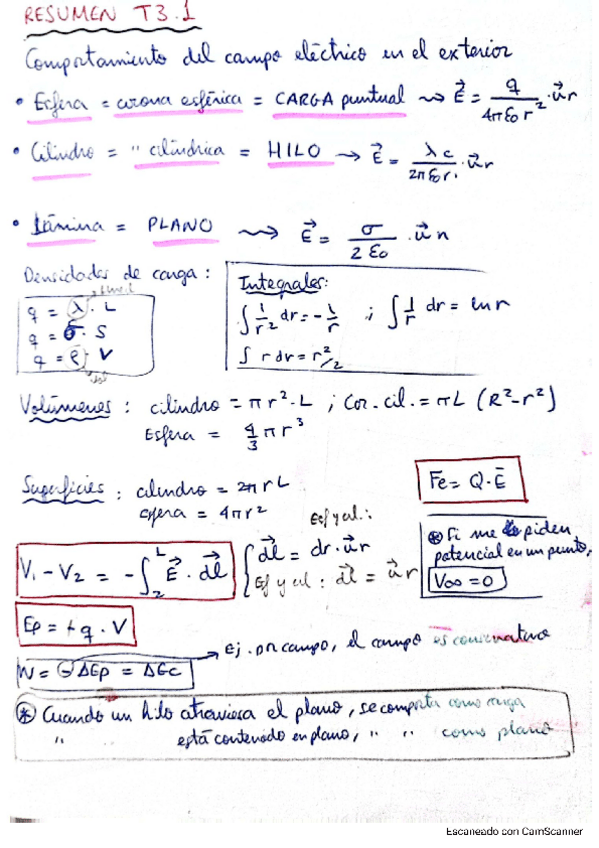 RESUMEN T3.1
Comportamiento del campo eléctrico en el exterior
• Esfera = corona esférica = CARGA puntual ⇝ E⃗ = q / 4πε₀r² · u⃗r
• Cilindro = " cilíndrica = HILO → E⃗ = λc / 2πε₀r · u⃗r
• Lámina = PLANO ⇝ E⃗ = σ / 2ε₀ · u⃗n
Densidades de carga :
q = λ · L
q = σ · S
q = ρ · V
Integrales:
∫ 1/r² dr = -1/r ; ∫ 1/r dr = ln r
∫ r dr = r²/2
Volúmenes : cilindro = πr² · L ; Cor. cil. = πL (R²-r²)
Esfera = 4/3 πr³
Superficies : cilindro = 2πrL
esfera = 4πr²
Fe = Q · E
V₁ - V₂ = - ∫ E⃗ · dl⃗
Esf y cil.:
dl⃗ = dr · u⃗r
Esf y cil : dl⃗ = u⃗r
⊛ Si me piden
potencial en un punto,
V∞ = 0
Ep = + q · V
W = - ΔEp = ΔEc
Ej. por campo, el campo es conservativo
⊛ Cuando un hilo atraviesa el plano, se comporta como carga
" " está contenido en plano, " " como plano
Escaneado con CamScanner